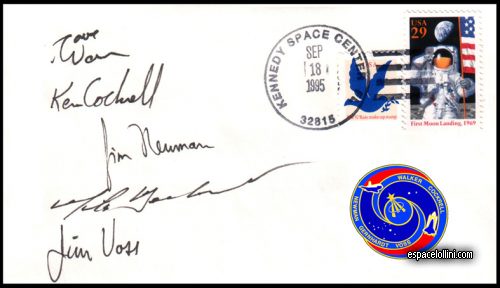 Dave
Ken Cockrell
Jim Newman
Jim Voss
KENNEDY SPACE CENTER
SEP
18
1995
32815
USA
29
Rate make-up stamp
First Moon Landing, 1969
WALKER COCKRELL
NEWMAN GERNHARDT VOSS
espacelollini.com